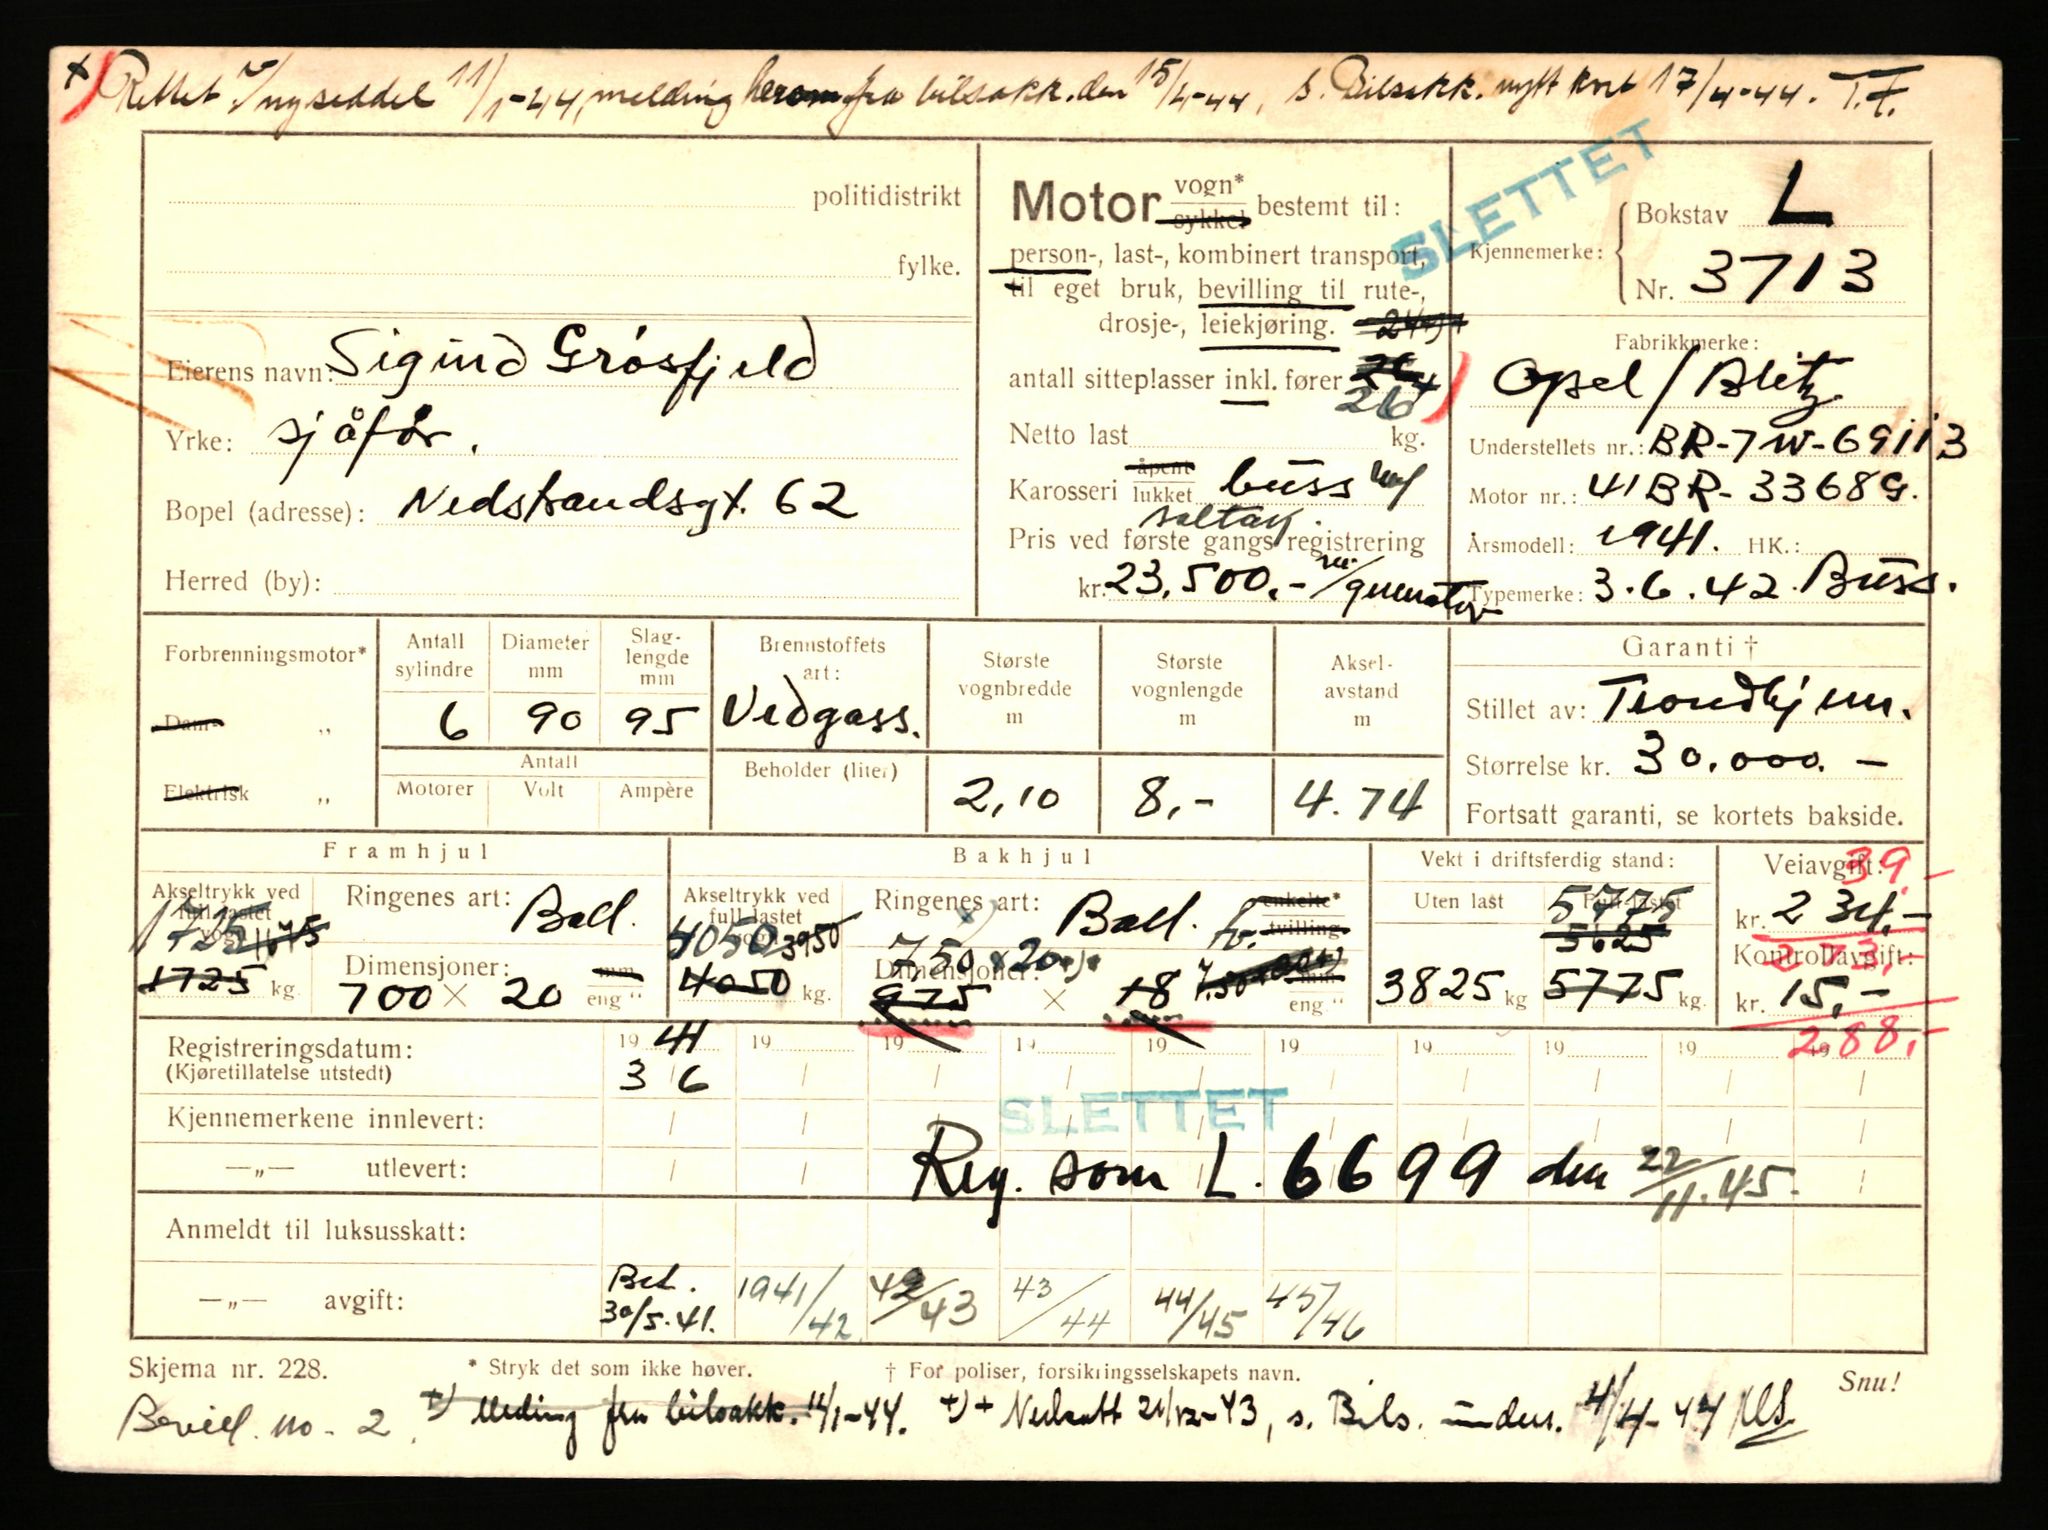 x) Rettet v/ny seddel 11/1-44, melding herom fra bilsakk. den 15/4-44, s. Bilsakk. nytt kort 17/4-44. T.F.
politidistrikt
fylke.
Eierens navn: Sigurd Grøsfjeld
Yrke: sjåfør.
Bopel (adresse): Nedstrandsgt. 62
Herred (by):
Motor vogn* sykkel bestemt til:
person-, last-, kombinert transport,
til eget bruk, bevilling til rute-,
drosje-, leiekjøring.
antall sitteplasser inkl. fører 26 x)
Netto last kg.
Karosseri åpent lukket buss m/
soltak.
Pris ved første gangs registrering
kr. 23,500.- m/generator
SLETTET
Kjennemerke: Bokstav L
Nr. 3713
Fabrikkmerke:
Opel/Blitz
Understellets nr.: BR-7W-69113
Motor nr.: 41BR-33689.
Årsmodell: 1941. HK.:
Typemerke: 3.6.42. Buss.
Forbrenningsmotor*
Dam- „
Elektrisk „
Antall sylindre 6
Diameter mm 90
Slag-lengde mm 95
Antall
Motorer Volt Ampère
Brennstoffets art: Vedgass.
Beholder (liter)
Største vognbredde m 2,10
Største vognlengde m 8,-
Aksel-avstand m 4.74
Garanti †
Stillet av: Trondhjem.
Størrelse kr. 30.000.-
Fortsatt garanti, se kortets bakside.
Framhjul
Akseltrykk ved full lastet
1725 1675
1725 kg.
Ringenes art: Ball.
Dimensjoner:
700 × 20 mm eng "
Bakhjul
Akseltrykk ved full lastet
4050 3950
4050 kg.
Ringenes art: Ball. enkelte* tvilling
750 x 20
Dimensjoner:
975 × 18 mm eng "
Vekt i driftsferdig stand:
Uten last 3825 kg
Full lastet
5775
5625
5775 kg.
Veiavgift: 39.-
kr. 234.-
273.-
Kontrollavgift:
kr. 15.-
288.-
Registreringsdatum: 19 41 19 19 19 19 19 19 19 19 19
(Kjøretillatelse utstedt) 3/6
Kjennemerkene innlevert: SLETTET
—„— utlevert: Reg. som L. 6699 den 22/11.45.
Anmeldt til luksusskatt:
—„— avgift: Bet. 30/5.41. 1941/42 42/43 43/44 44/45 45/46
Skjema nr. 228. * Stryk det som ikke høver. † For poliser, forsikringsselskapets navn. Snu!
Bevill. no. 2. x) Melding fra bilsakk. 11/1-44. +)+ Nedsatt 21/12-43, s. Bils. unders. 4/4-44